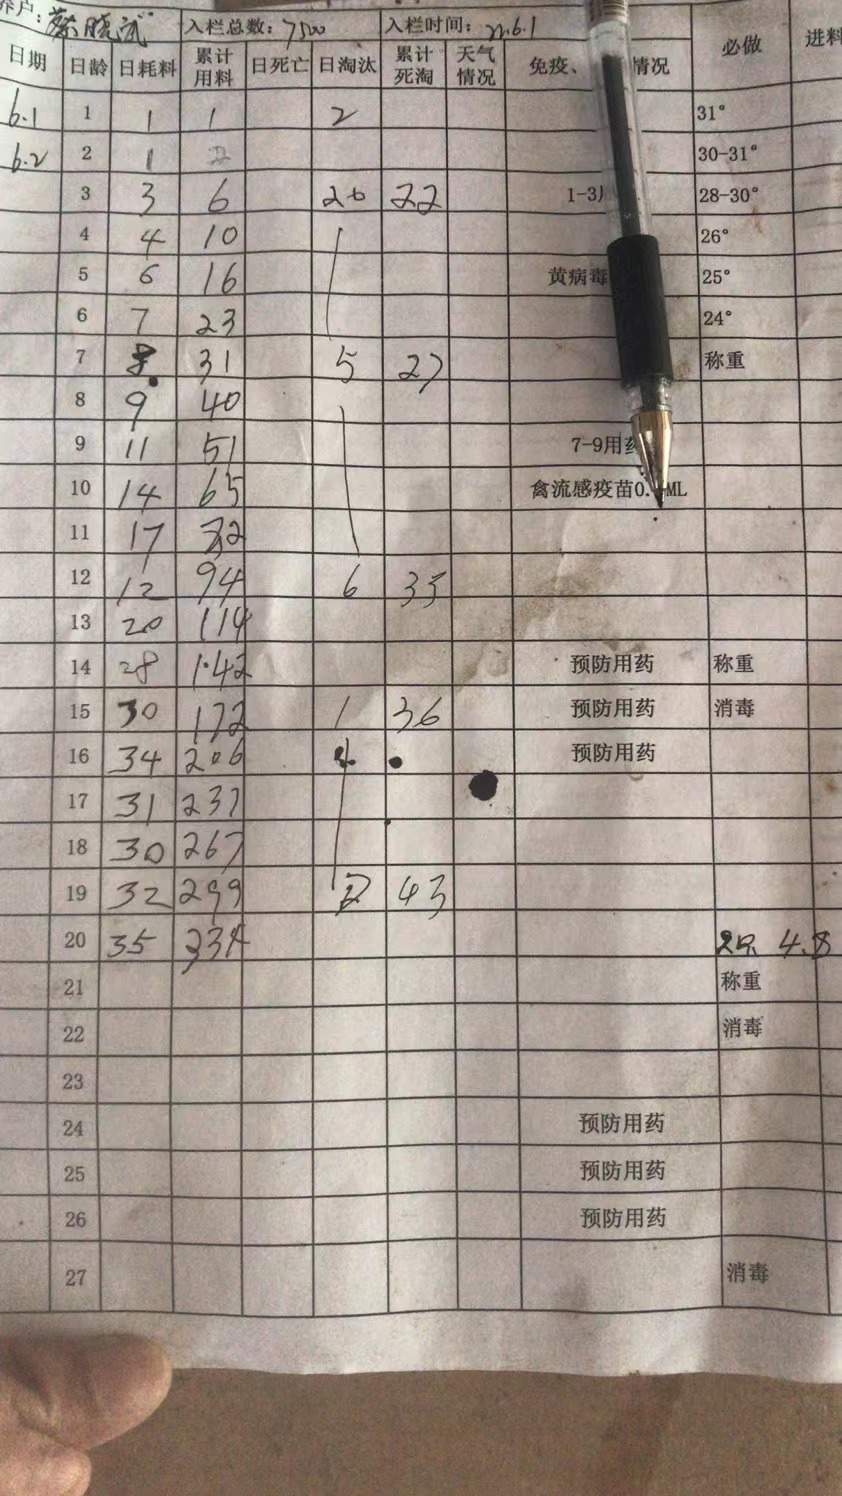 养户: 蔡晓武 入栏总数: 7500 入栏时间: 22.6.1
日期 日龄 日耗料 累计用料 日死亡 日淘汰 累计死淘 天气情况 免疫、 情况 必做 进料
6.1 1 1 1 2 31°
6.2 2 1 2 30-31°
3 3 6 20 22 1-3 28-30°
4 4 10 26°
5 6 16 黄病毒 25°
6 7 23 24°
7 8 31 5 27 称重
8 9 40
9 11 51 7-9用药
10 14 65 禽流感疫苗0. ML
11 17 82
12 12 94 6 35
13 20 114
14 28 142 预防用药 称重
15 30 172 1 36 预防用药 消毒
16 34 206 预防用药
17 31 237
18 30 267
19 32 299 43
20 35 334 2只 4.8
21 称重
22 消毒
23
24 预防用药
25 预防用药
26 预防用药
27 消毒